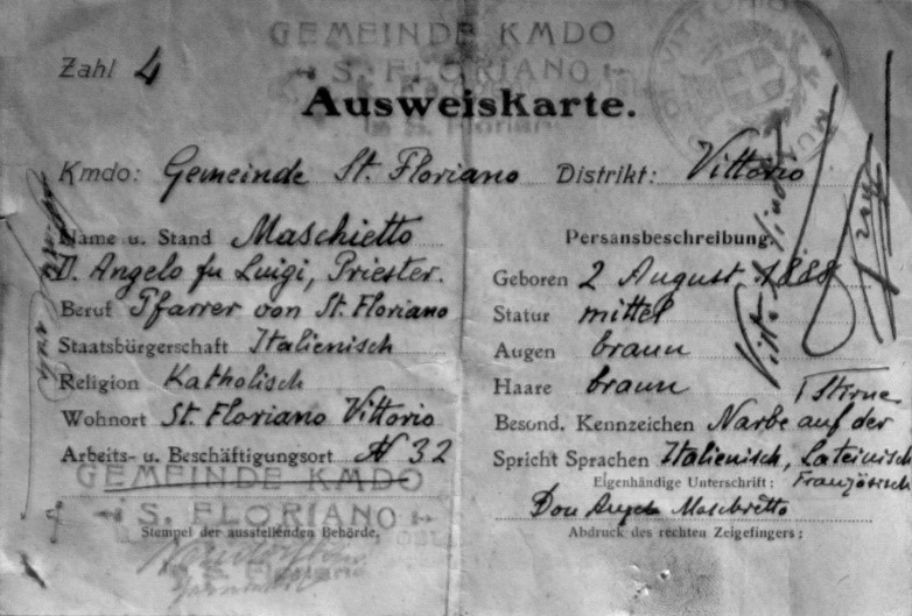 GEMEINDE KMDO
S. FLORIANO
Zahl 4
Ausweiskarte.
Kmdo: Gemeinde St. Floriano Distrikt: Vittorio
Name u. Stand Maschietto
D. Angelo fu Luigi, Priester.
Beruf Pfarrer von St. Floriano
Staatsbürgerschaft Italienisch
Religion Katholisch
Wohnort St. Floriano Vittorio
Arbeits- u. Beschäftigungsort N 32
GEMEINDE KMDO
S. FLORIANO
Stempel der ausstellenden Behörde.
Persansbeschreibung.
Geboren 2 August 1888
Statur mittel
Augen braun
Haare braun
Besond. Kennzeichen Narbe auf der
Stirne
Spricht Sprachen Italienisch, Lateinisch
Französisch
Eigenhändige Unterschrift:
Don Angelo Maschietto
Abdruck des rechten Zeigefingers: